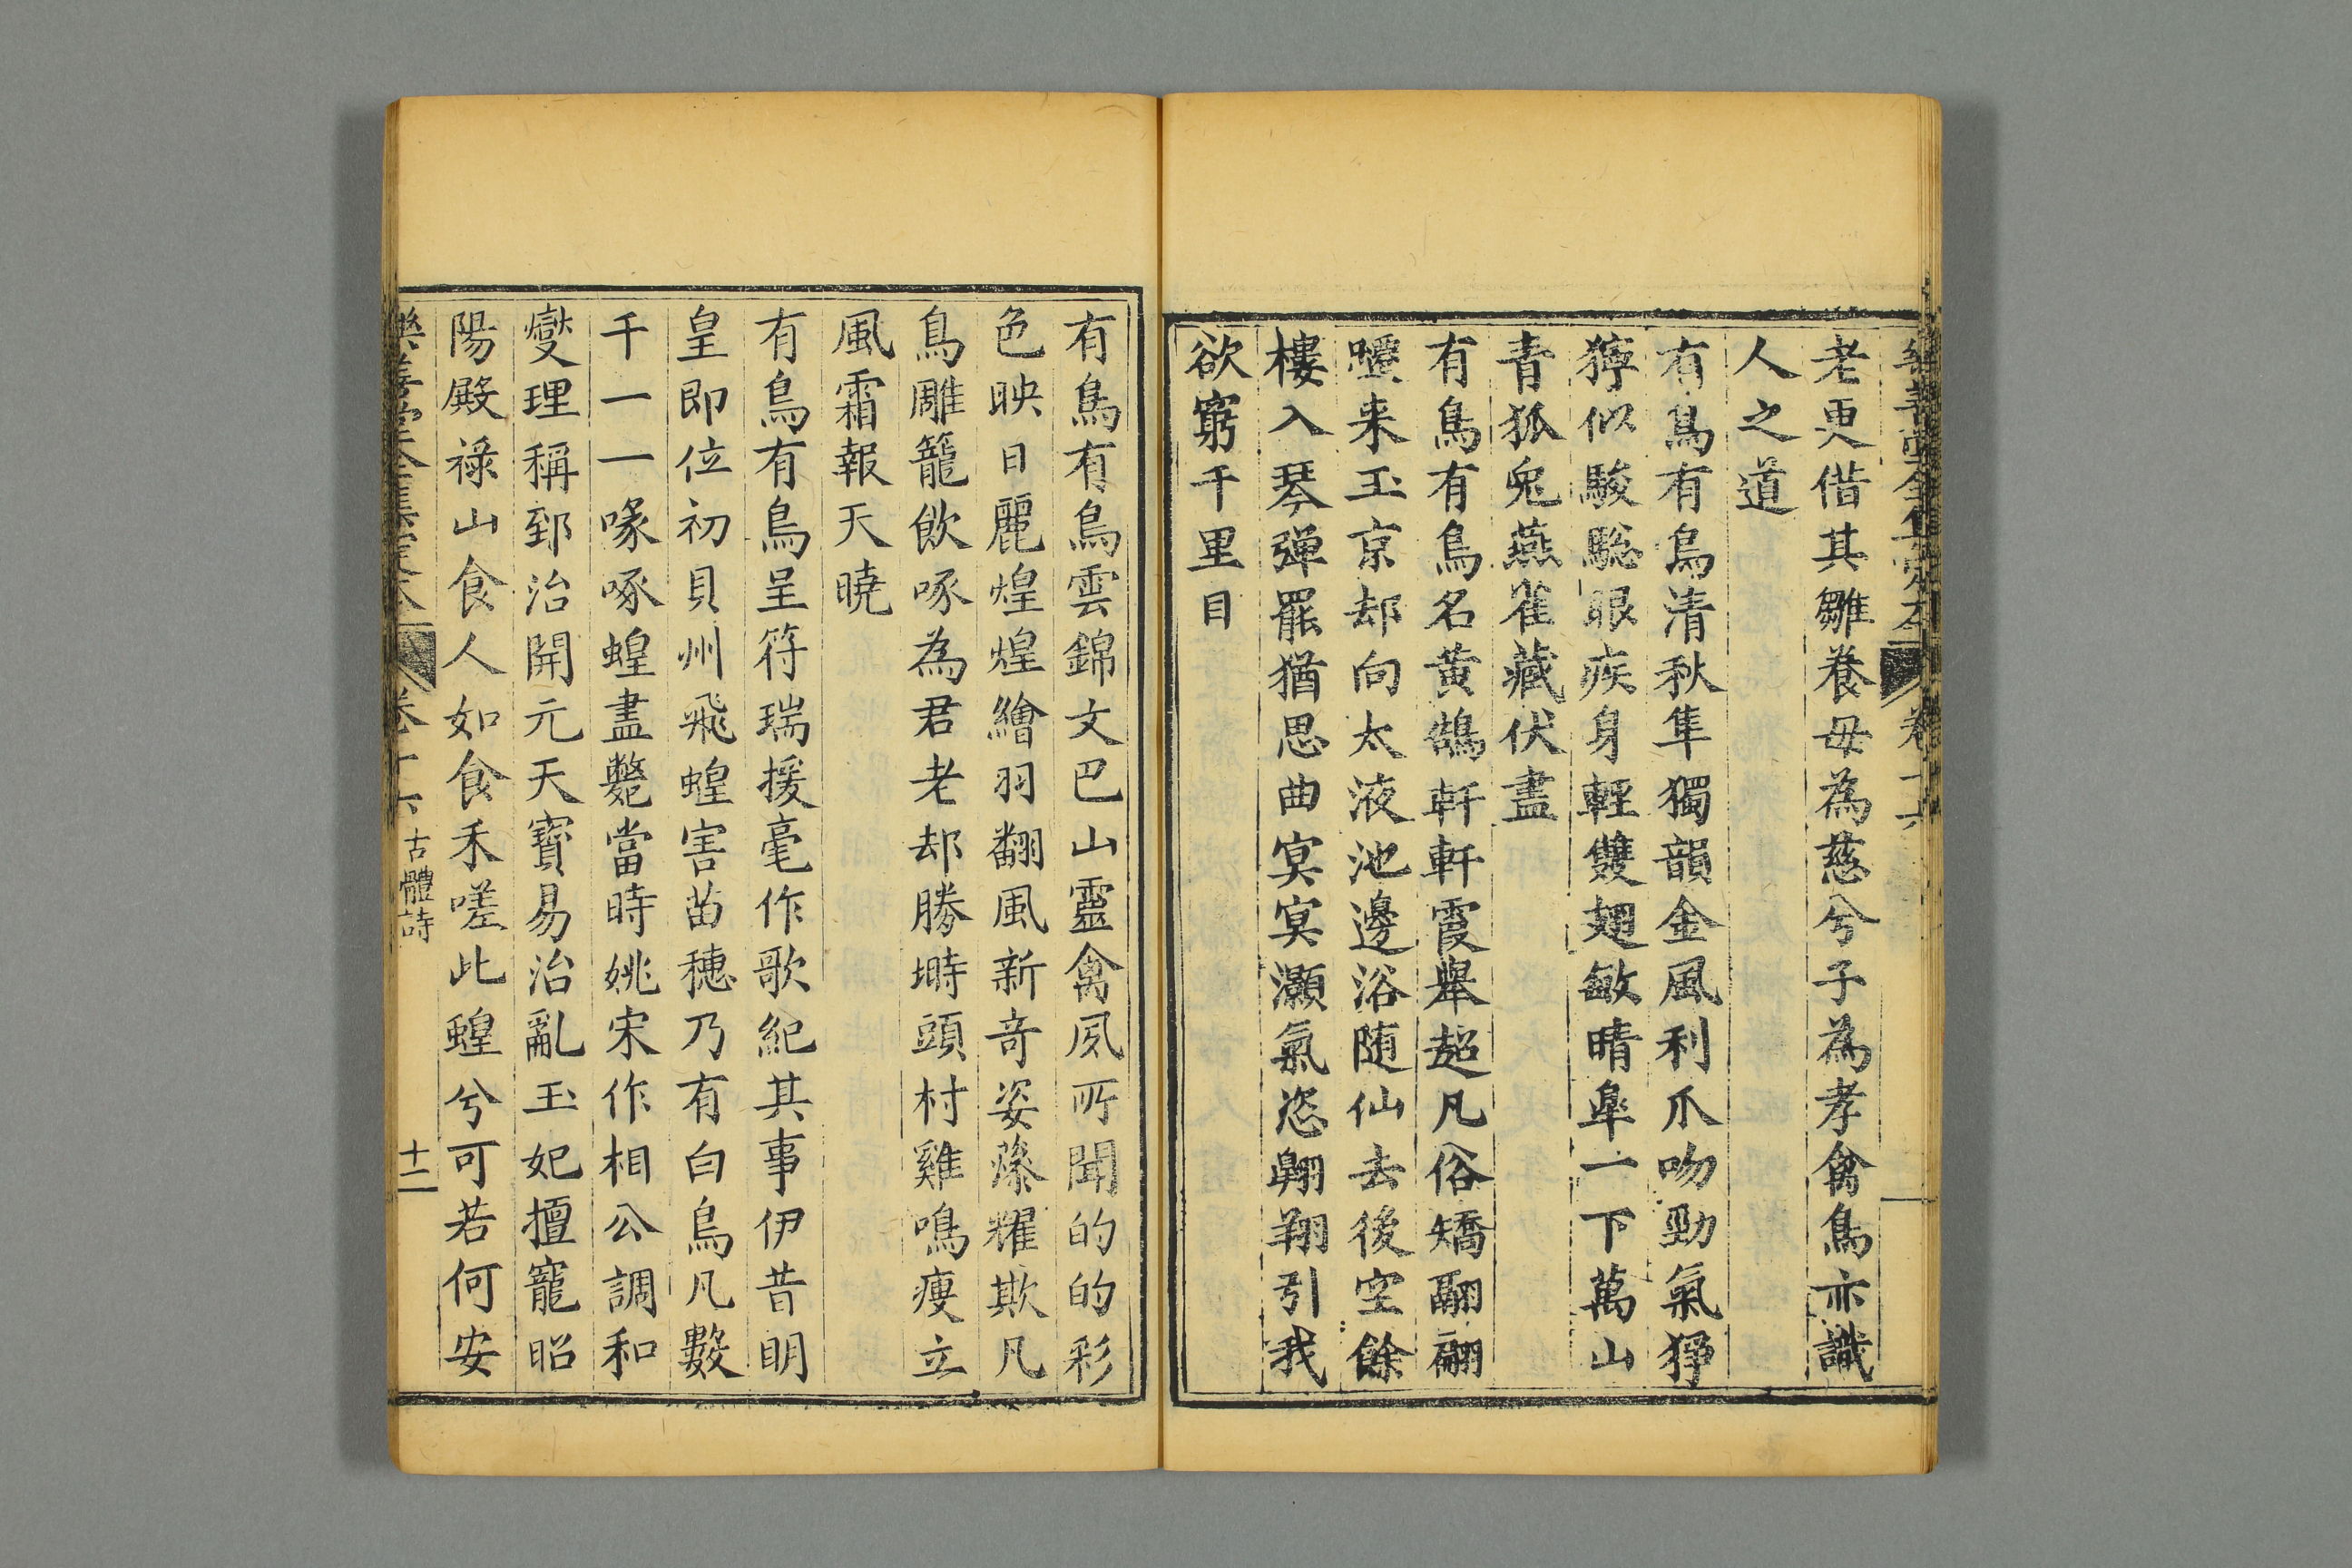 樂善堂全集定本 卷十六
老更偕其雛養母為慈兮子為孝禽鳥亦識
人之道
有鳥有鳥清秋隼獨韻金風利爪吻勁氣猙
獰似駿驄眼疾身輕雙翅敏晴皐一下萬山
青狐兔燕雀藏伏盡
有鳥有鳥名黃鵠軒軒霞舉超凡俗矯翮翩翩
曀来玉京却向太液池邊浴随仙去後空餘
樓入琴彈罷猶思曲冥冥灝氣恣翱翔引我
欲窮千里目
有鳥有鳥雲錦文巴山靈禽夙所聞的的彩
色映日麗煌煌繪羽翻風新奇姿藻耀欺凡
鳥雕籠飲啄為君老却勝塒頭村雞鳴瘦立
風霜報天曉
有鳥有鳥呈符瑞援毫作歌紀其事伊昔明
皇即位初貝州飛蝗害苗穗乃有白鳥凡數
千一一喙啄蝗盡斃當時姚宋作相公調和
燮理稱郅治開元天寶易治亂玉妃擅寵昭
陽殿祿山食人如食禾嗟此蝗兮可若何安
樂善堂全集定本 卷十六 古體詩 十二